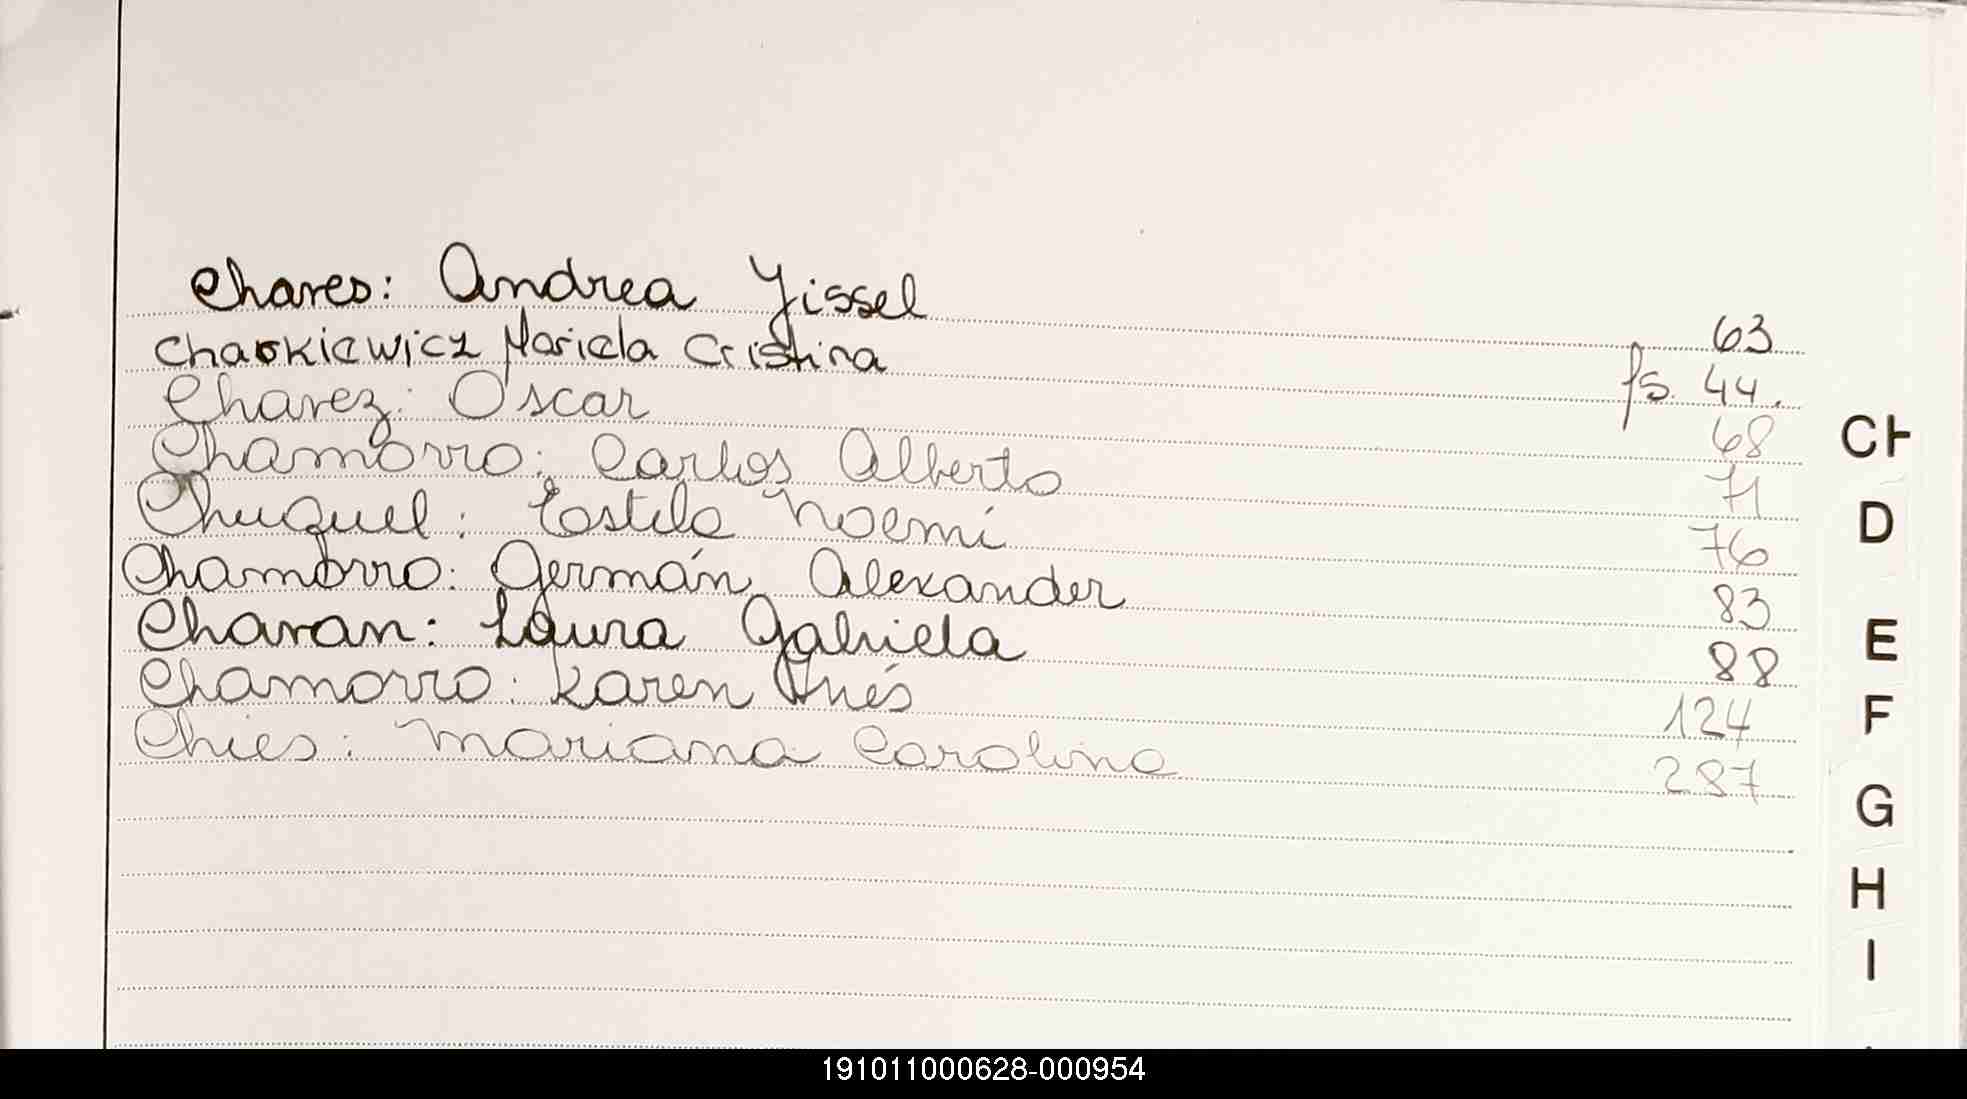 Chaves: Andrea Yissel 63
Chaskiewicz Mariela Cristina fs. 44.
Chavez: Oscar 68
Chamorro: Carlos Alberto 71
Chuquel: Estela Noemí 76
Chamorro: Germán Alexander 83
Charan: Laura Gabriela 88
Chamorro: Karen Inés 124
Chies: Mariana Carolina 287
CH
D
E
F
G
H
I
191011000628-000954